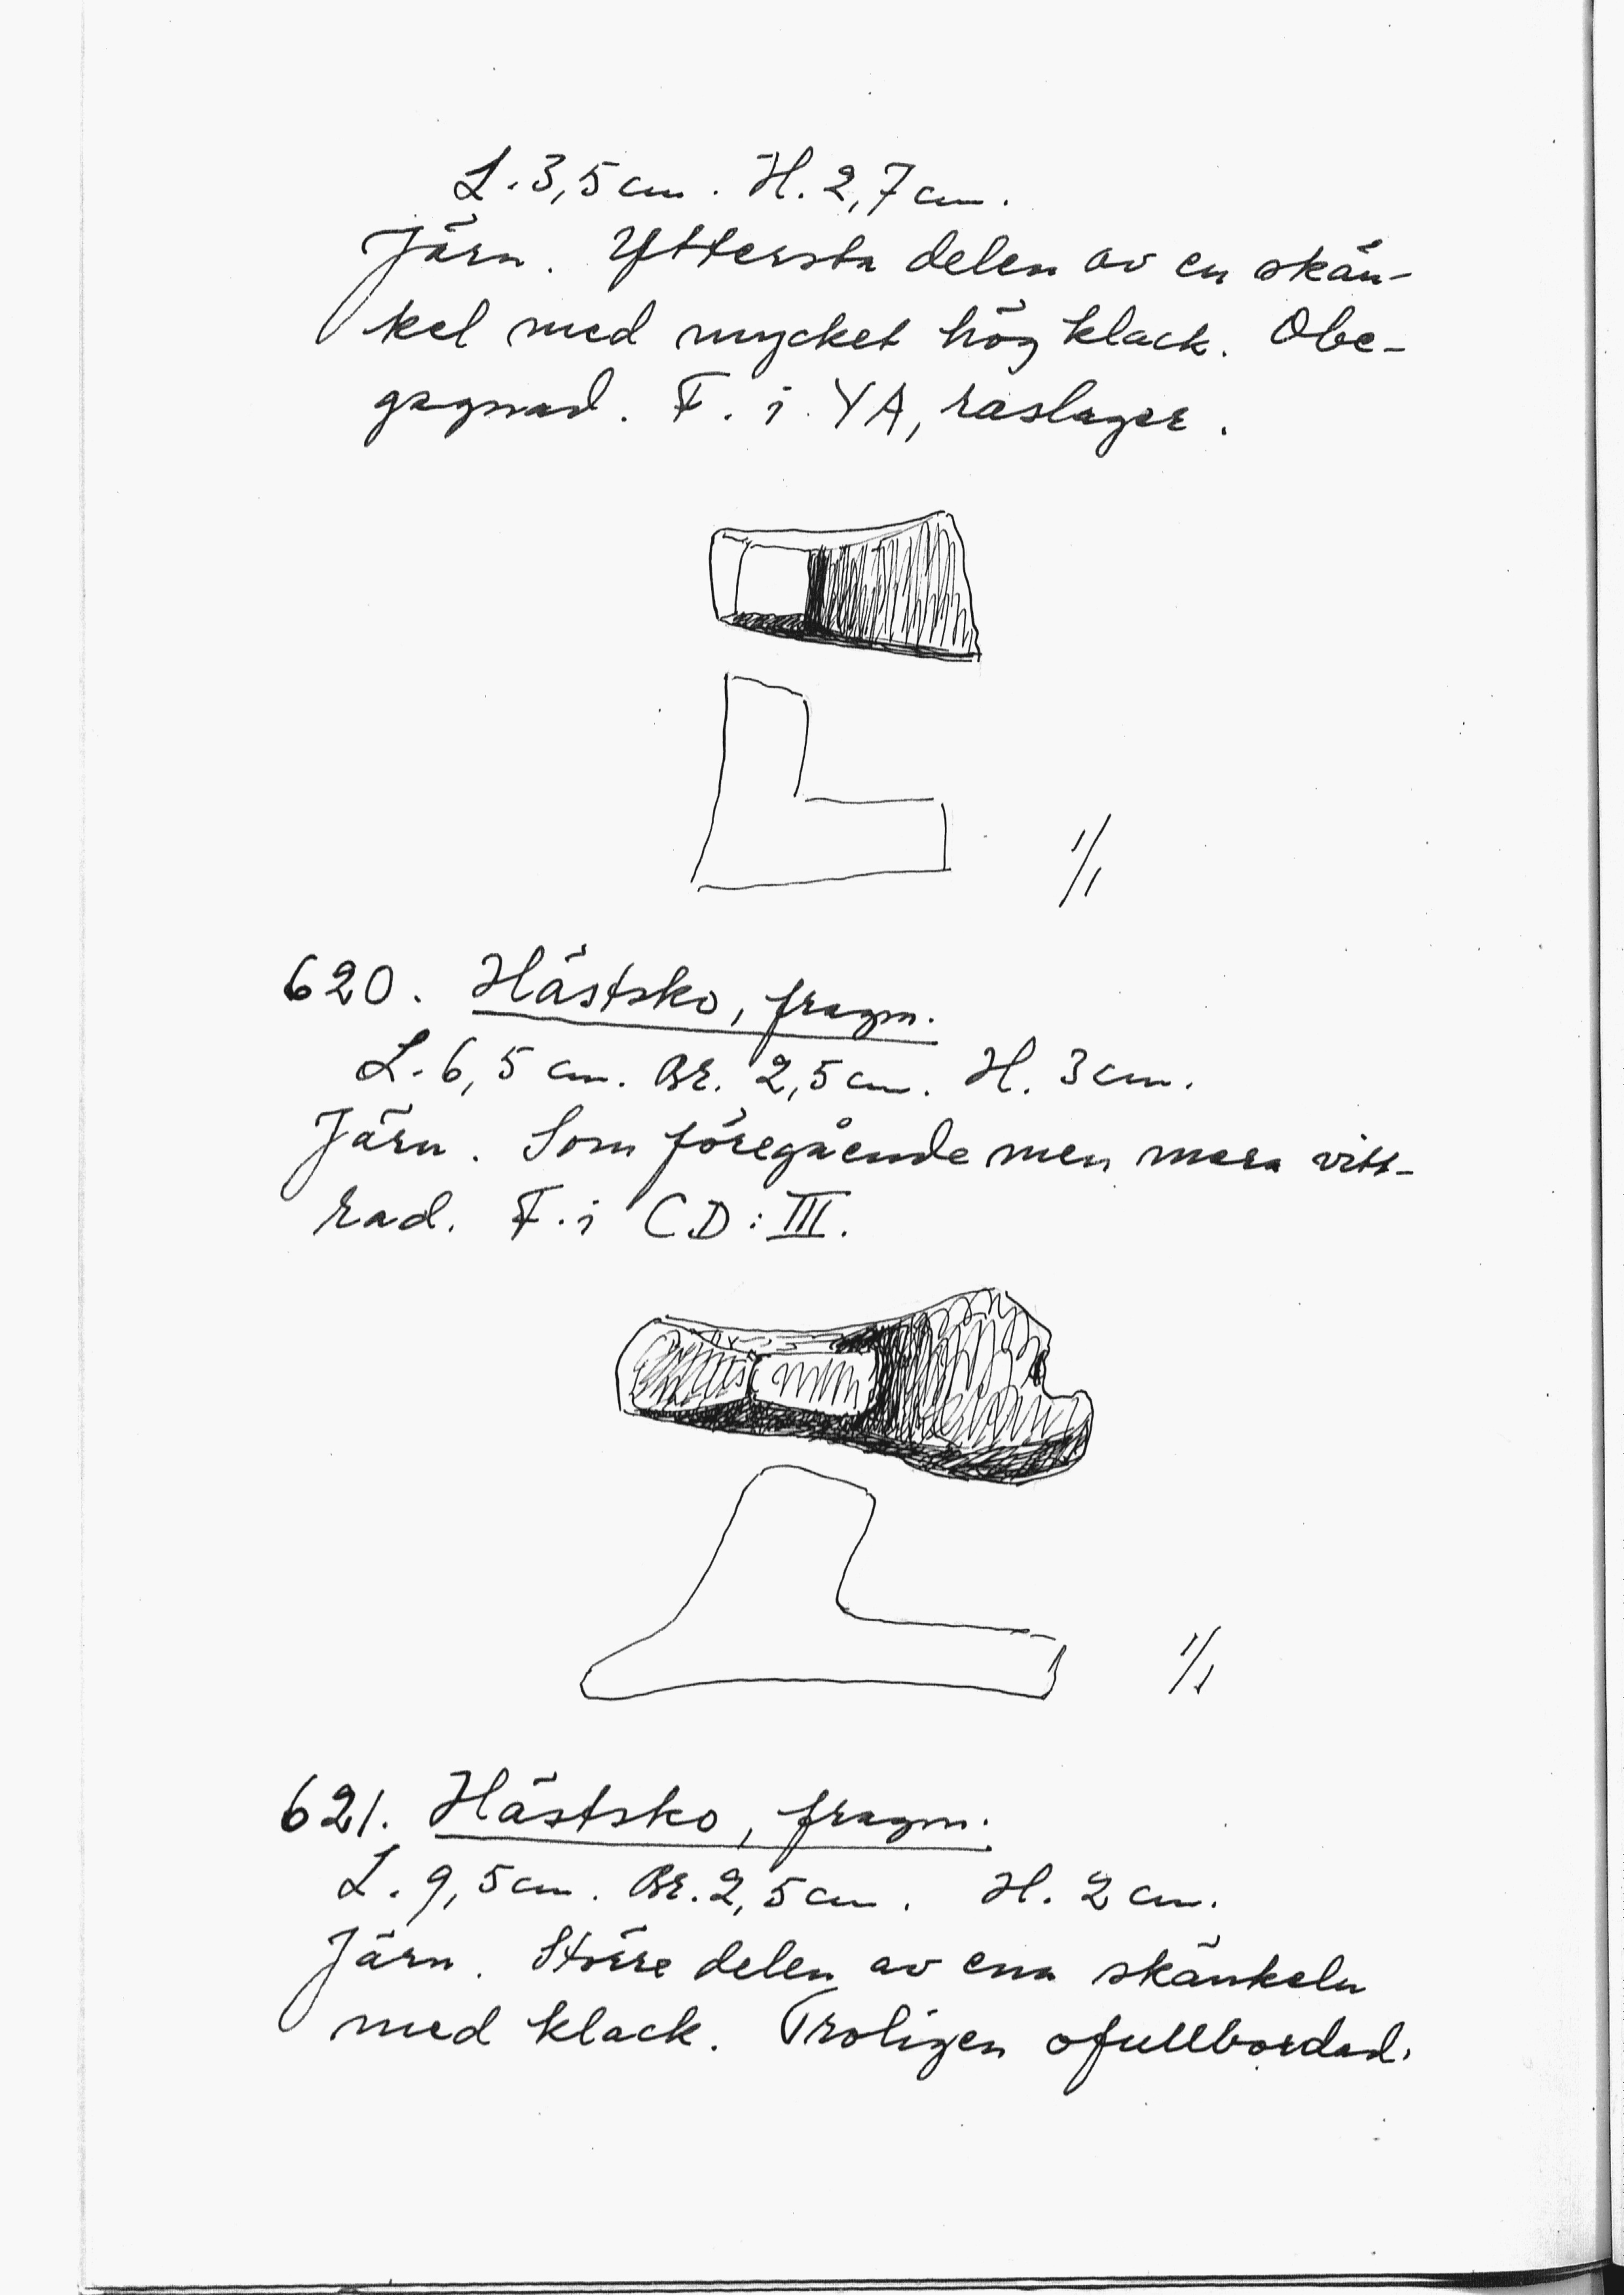 L. 3,5 cm. H. 2,7 cm.
Järn. Yttersta delen av en skän-
kel med mycket hög klack. Obe-
gagnad. F. i YA, raslager.
1/1
620. Hästsko, fragm.
L. 6,5 cm. Br. 2,5 cm. H. 3 cm.
Järn. Som föregående men mera vitt-
rad. F. i CD: III.
1/1
621. Hästsko, fragm.
L. 9,5 cm. Br. 2,5 cm. H. 2 cm.
Järn. Större delen av ena skänkeln
med klack. Troligen ofullbordad.